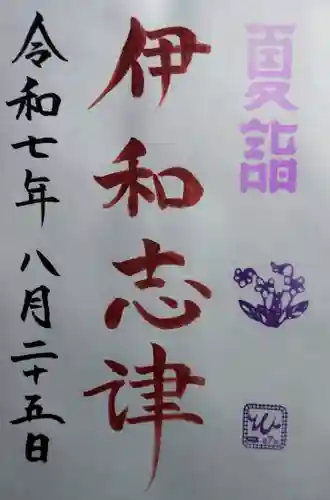 夏詣
伊和志津
令和七年八月二十五日